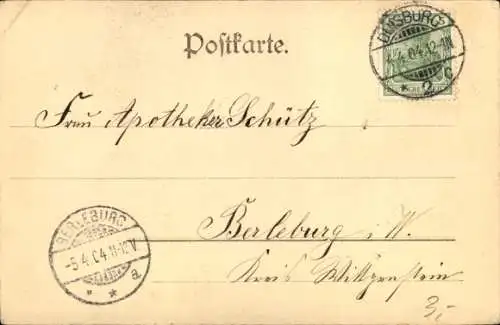 Postkarte.
DUISBURG
4.4.04.12-1N
* 2c
Frau Apotheker Schütz
Berleburg i. W.
Kreis Wittgenstein
BERLEBURG
-5.4.04.11-12V
* * a
3,-